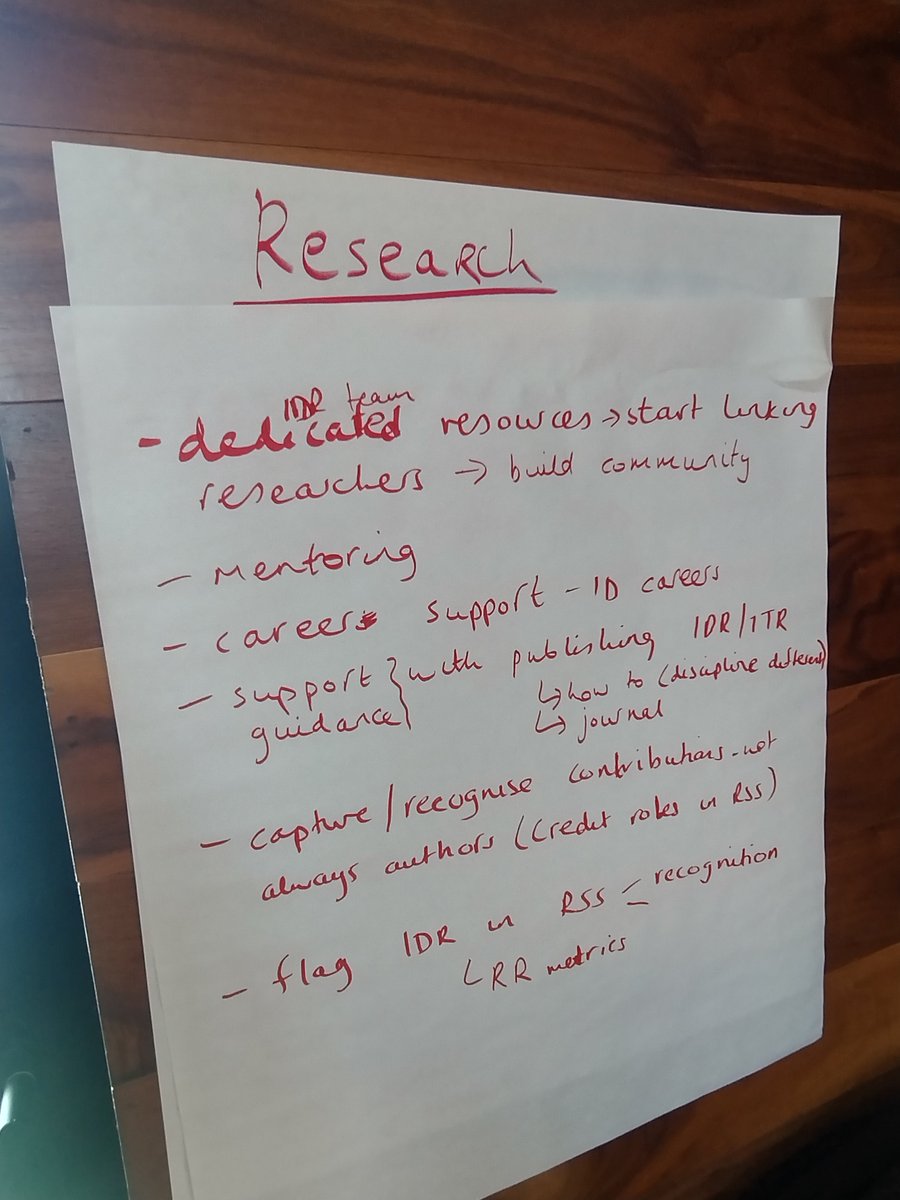 Research
IDR team
- dedicated resources → start linking
researchers → build community
- Mentoring
- careers support - ID careers
- support } with publishing IDR/ITR
guidance
↳ how to (discipline different)
↳ journal
- capture/recognise contributions - not
always authors (Credit roles in RSS)
- flag IDR in RSS - recognition
RR metrics